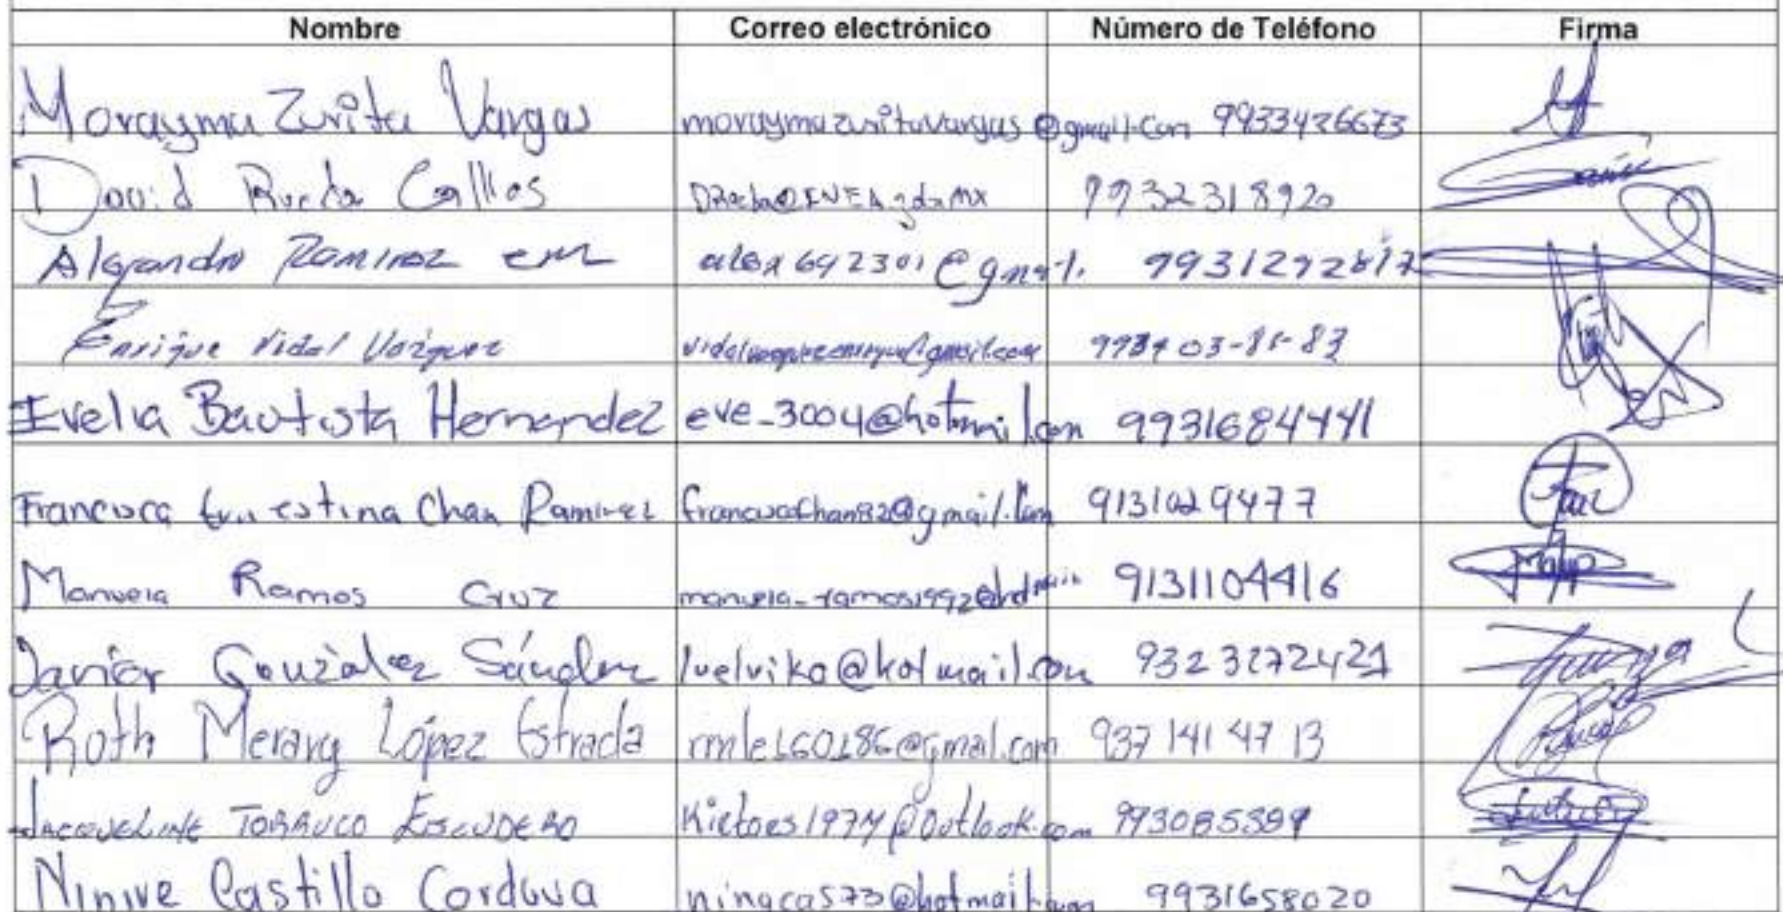 Nombre Correo electrónico Número de Teléfono Firma
Morayma Zurita Vargas moraymazuritavargas@gmail.com 9933426673
David Rueda 9932318920
Alejandro Ramirez alex692301@gmail.
Enrique Vidal Vazquez
Evelia Bautista Hernandez eve_3004@hotmail.com 9931684441
Francisca Ernestina Chan Ramirez franciscachan82@gmail.com 9131029477
Manuela Ramos Cruz manuela_ramos1992@hotmail 9131104416
Javier González Sánchez luelviko@hotmail.com 9323272421
Ruth Meravy López Estrada rmle160186@gmail.com 937 141 47 13
JACQUELINE TORRUCO ESCUDERO Kietoes1974@Outlook.com
Ninive Castillo Cordova ninacas73@hotmail.com 9931658020